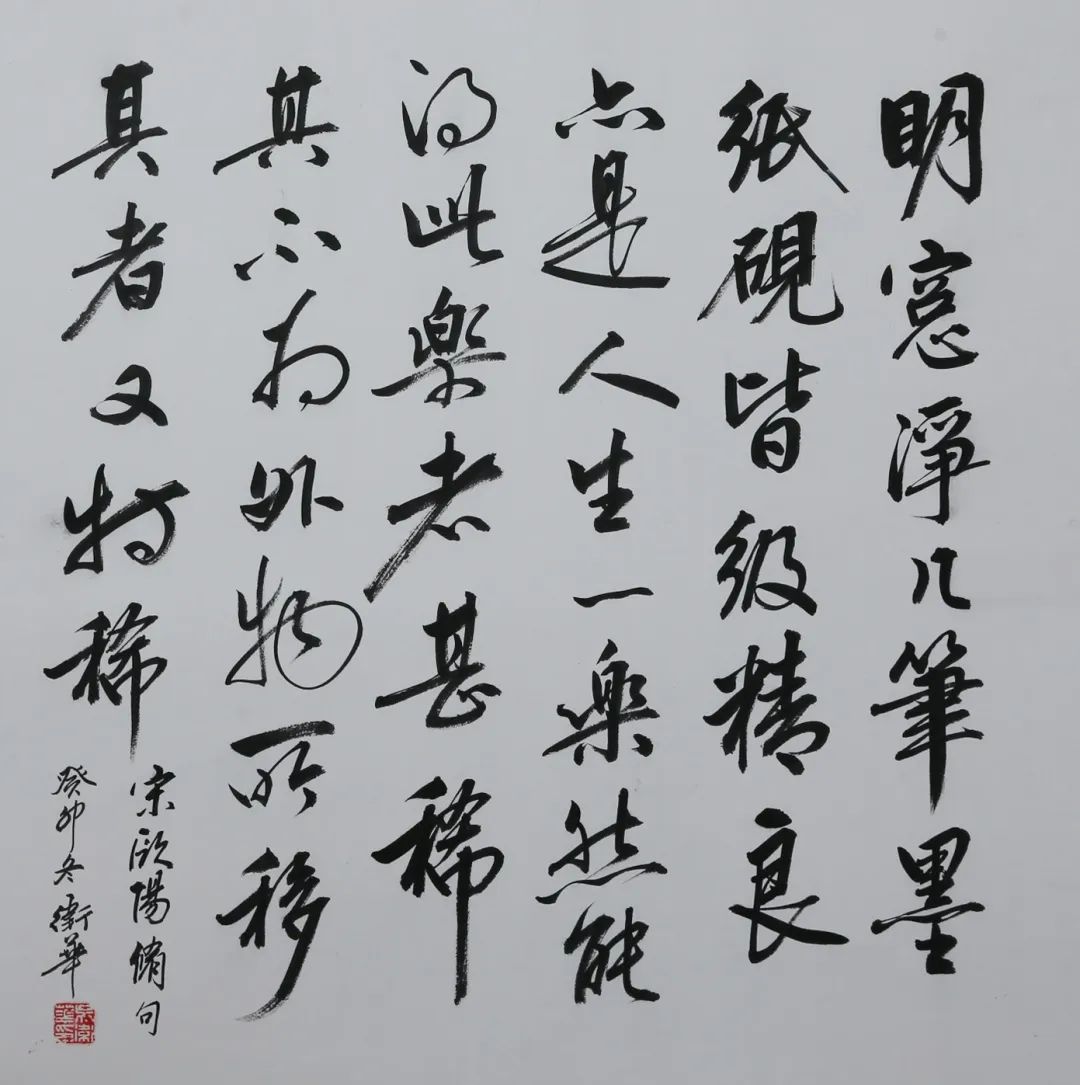 明窓淨几筆墨
紙硯皆級精良
亦是人生一樂然能
得此樂者甚稀
其不為外物所移
其者又特稀
宋歐陽脩句
癸卯冬衛華